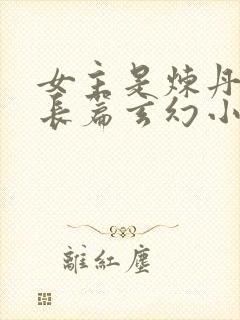 女主是炼丹
长篇玄幻小
離紅塵